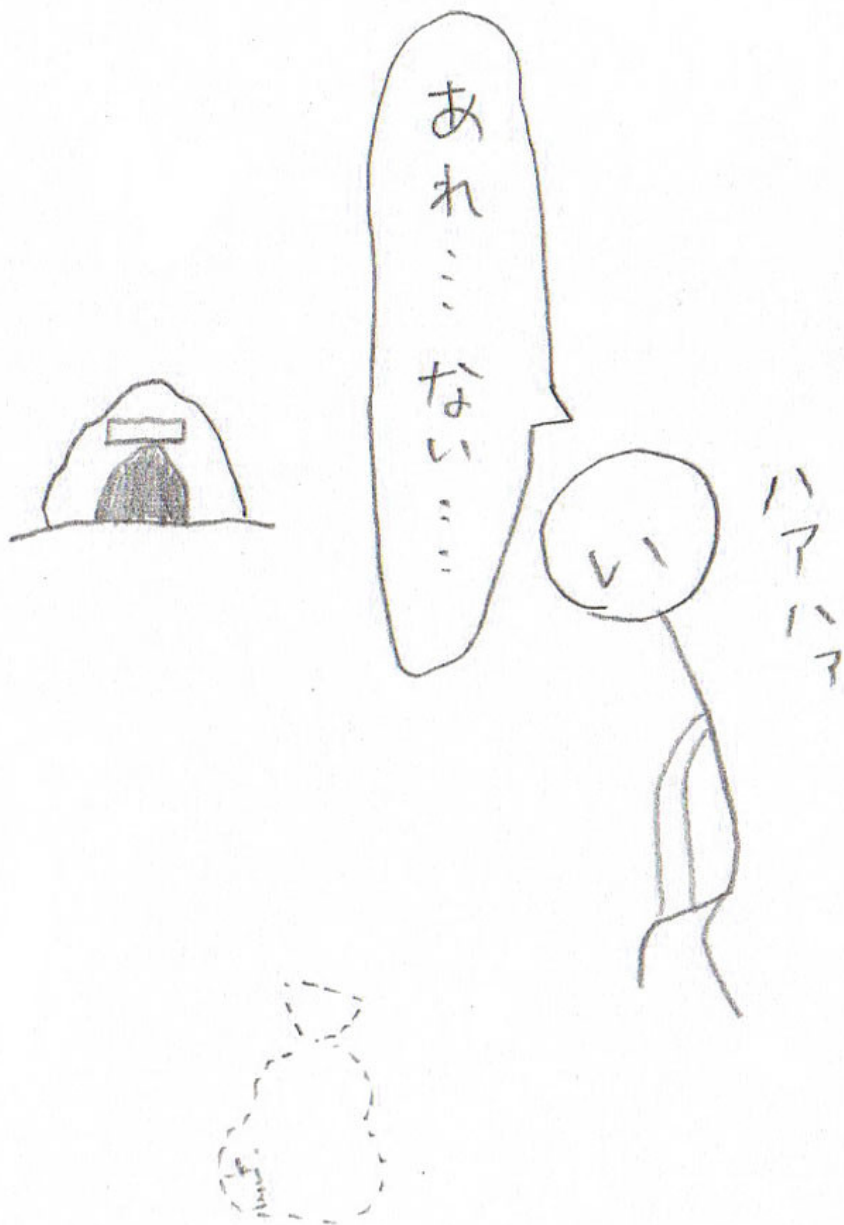 あれ…ない…
ハアハア